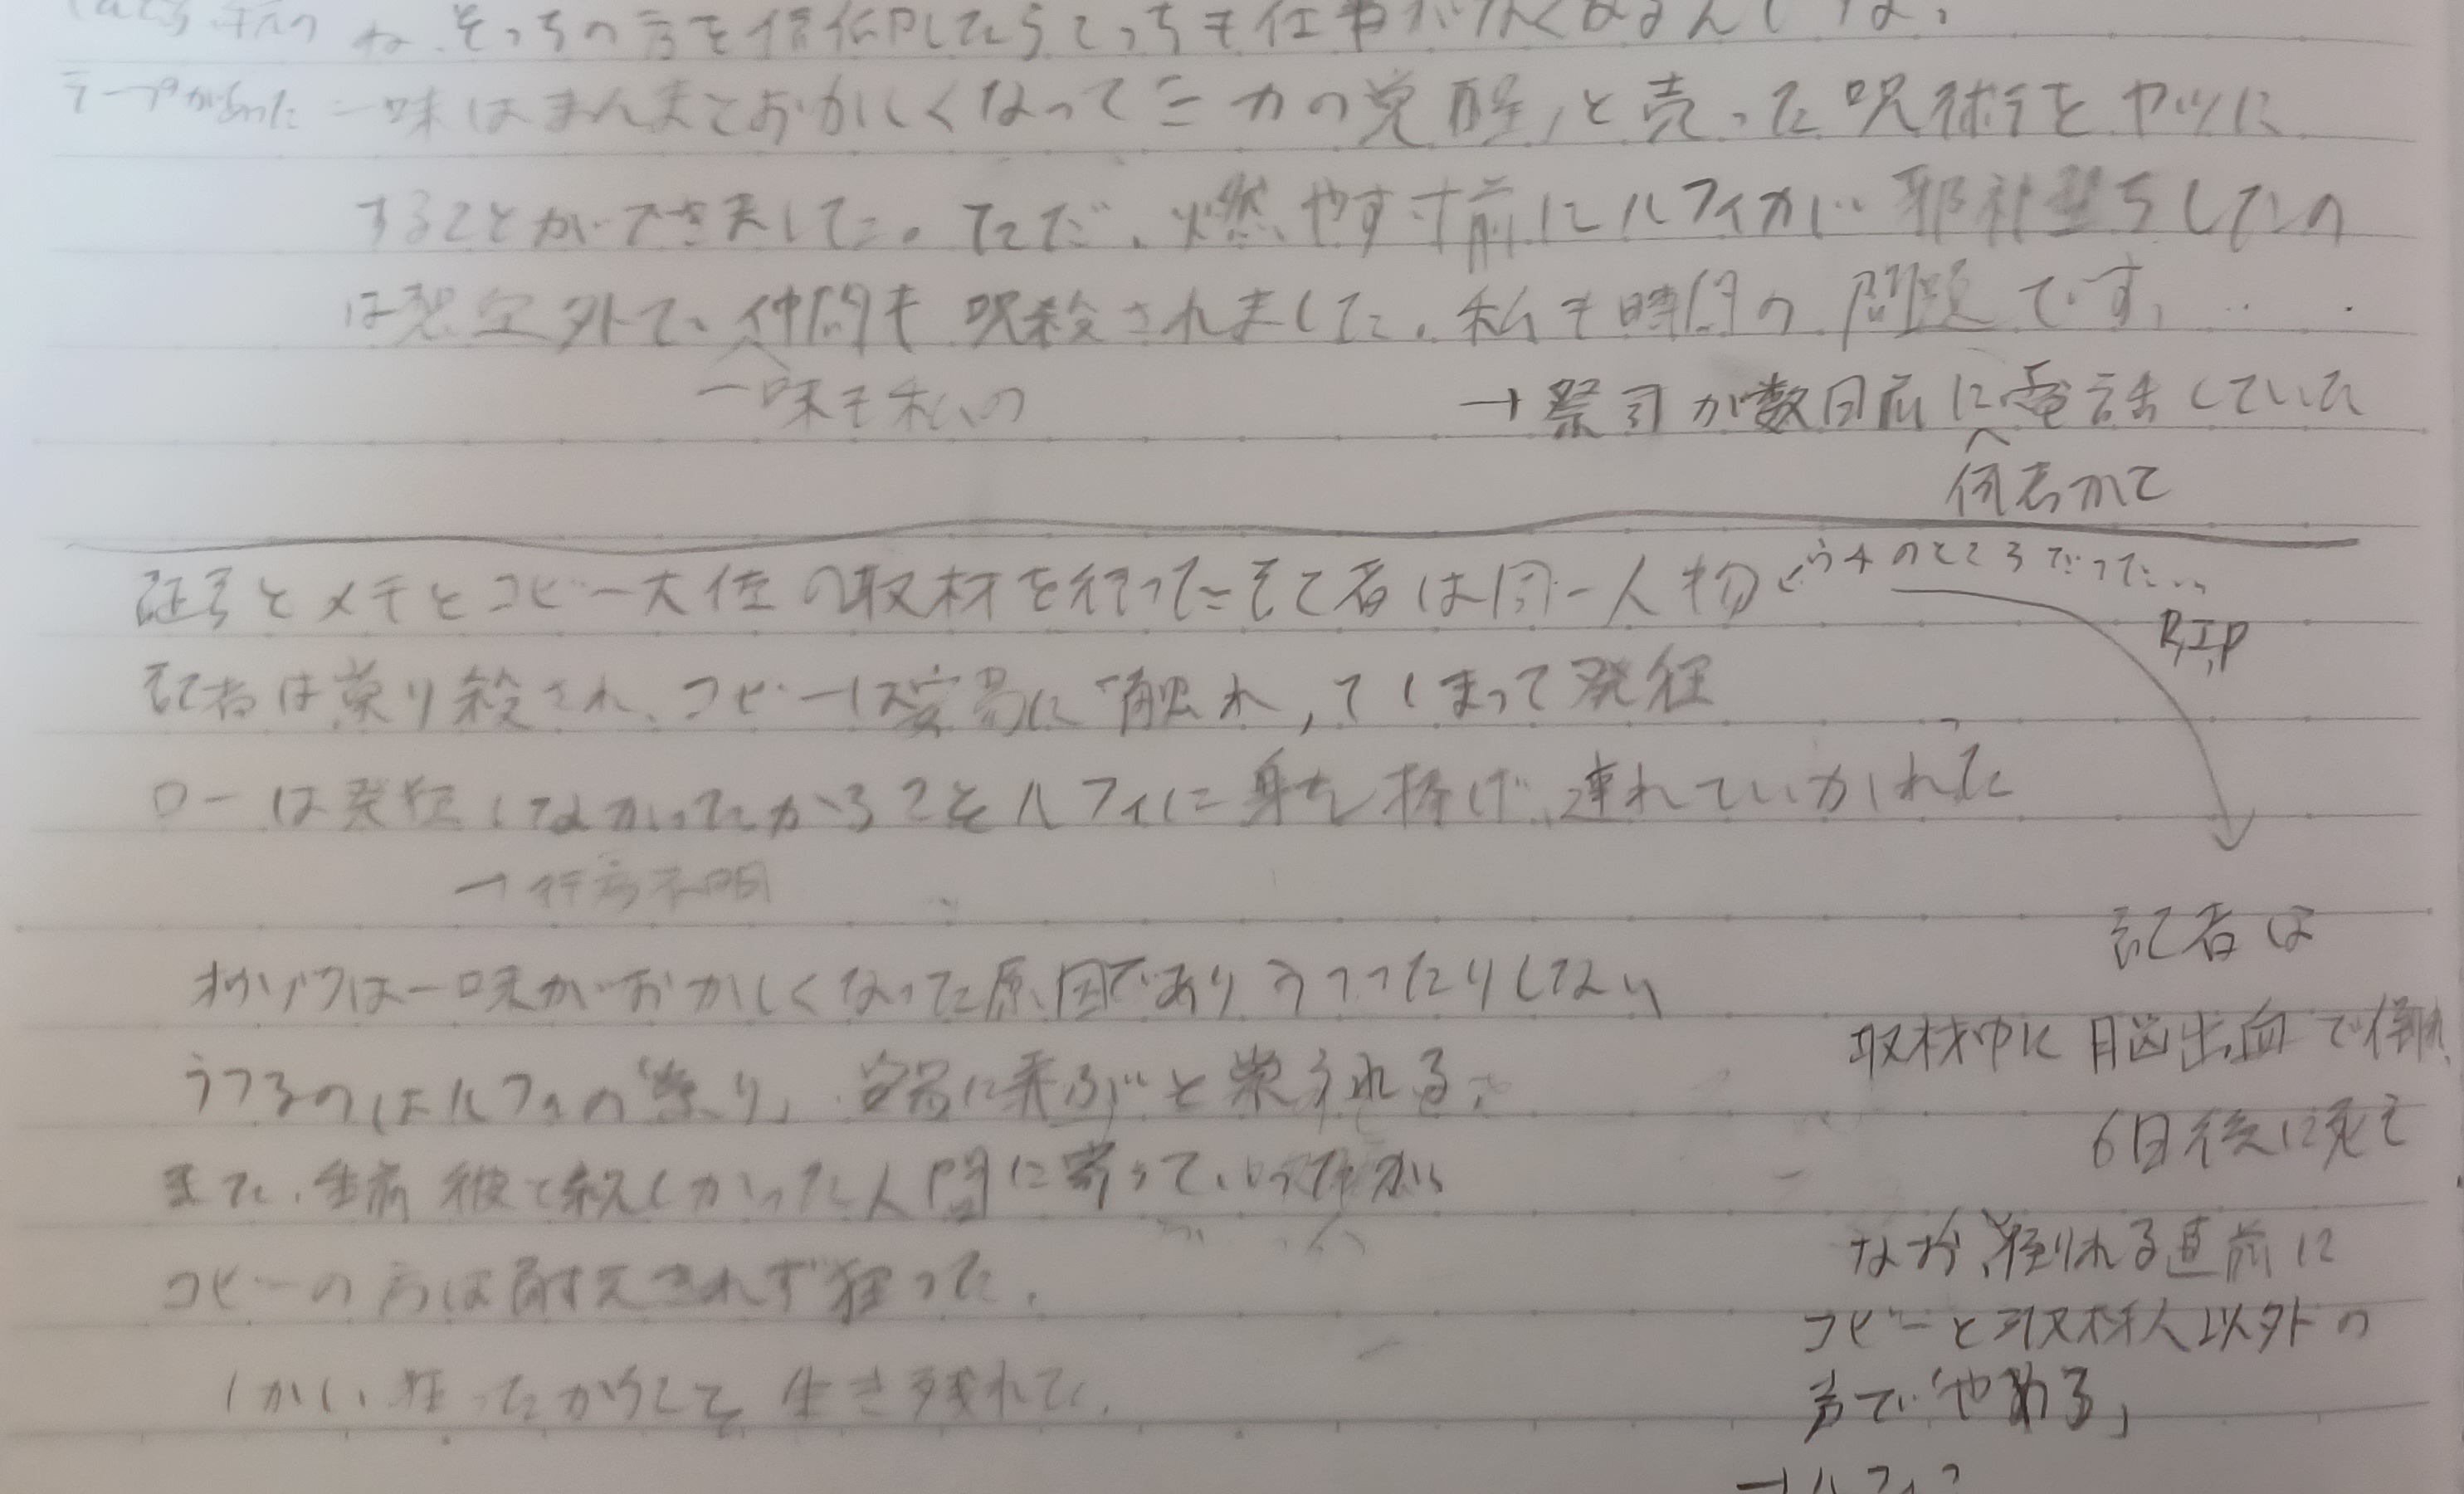 ね、そっちの方を信仰したらこっちも仕事がなくなるんでね、
テープがあった
一味はまんまとおかしくなって「力の覚醒」と売った呪術をヤツに
することができました。ただ、燃やす寸前にルフィが邪神 をしたの
は想定外で、仲間も呪殺されました。私も時間の問題です、
一味も私の
→祭司が数日前に電話していた
何者かで
記者とメモとコビー大佐の取材を行った記者は同一人物
ウチのところだった…
R.I.P
記者は祟り殺され、コビーは容易に触れ、てしまって発狂
ローは発狂してなかったからこそルフィに身を捧げ、連れていかれた
→行方不明
は一味がおかしくなった原因でありうつったりしない
うつるのはルフィの「祟り」 容易に 祟られる、
また、生前彼と親しかった人間に寄っていったが
コビーの方は耐えきれず狂った。
しかし、狂ったからこそ生き残れた。
記者は
取材中に脳出血で倒れ、
6日後に死亡
なお、倒れる直前に
コビーと取材人以外の
声で「やめろ」
→ルフィ?